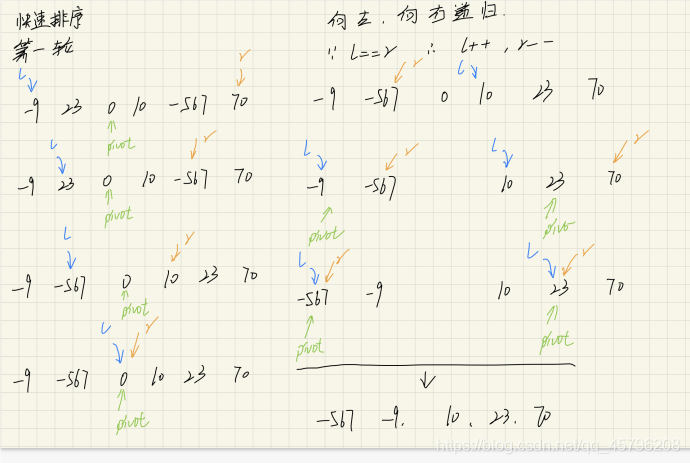 快速排序
第一轮
l r
-9 23 0 10 -567 70
pivot
l r
-9 23 0 10 -567 70
pivot
l r
-9 -567 0 10 23 70
pivot
l r
-9 -567 0 10 23 70
pivot
向左,向右递归.
∵ l==r ∴ l++, r--
r l
-9 -567 0 10 23 70
l r l r
-9 -567 10 23 70
pivot pivot
l r l r
-567 -9 10 23 70
pivot pivot
-567 -9. 10. 23. 70
https://blog.csdn.net/qq_45796208